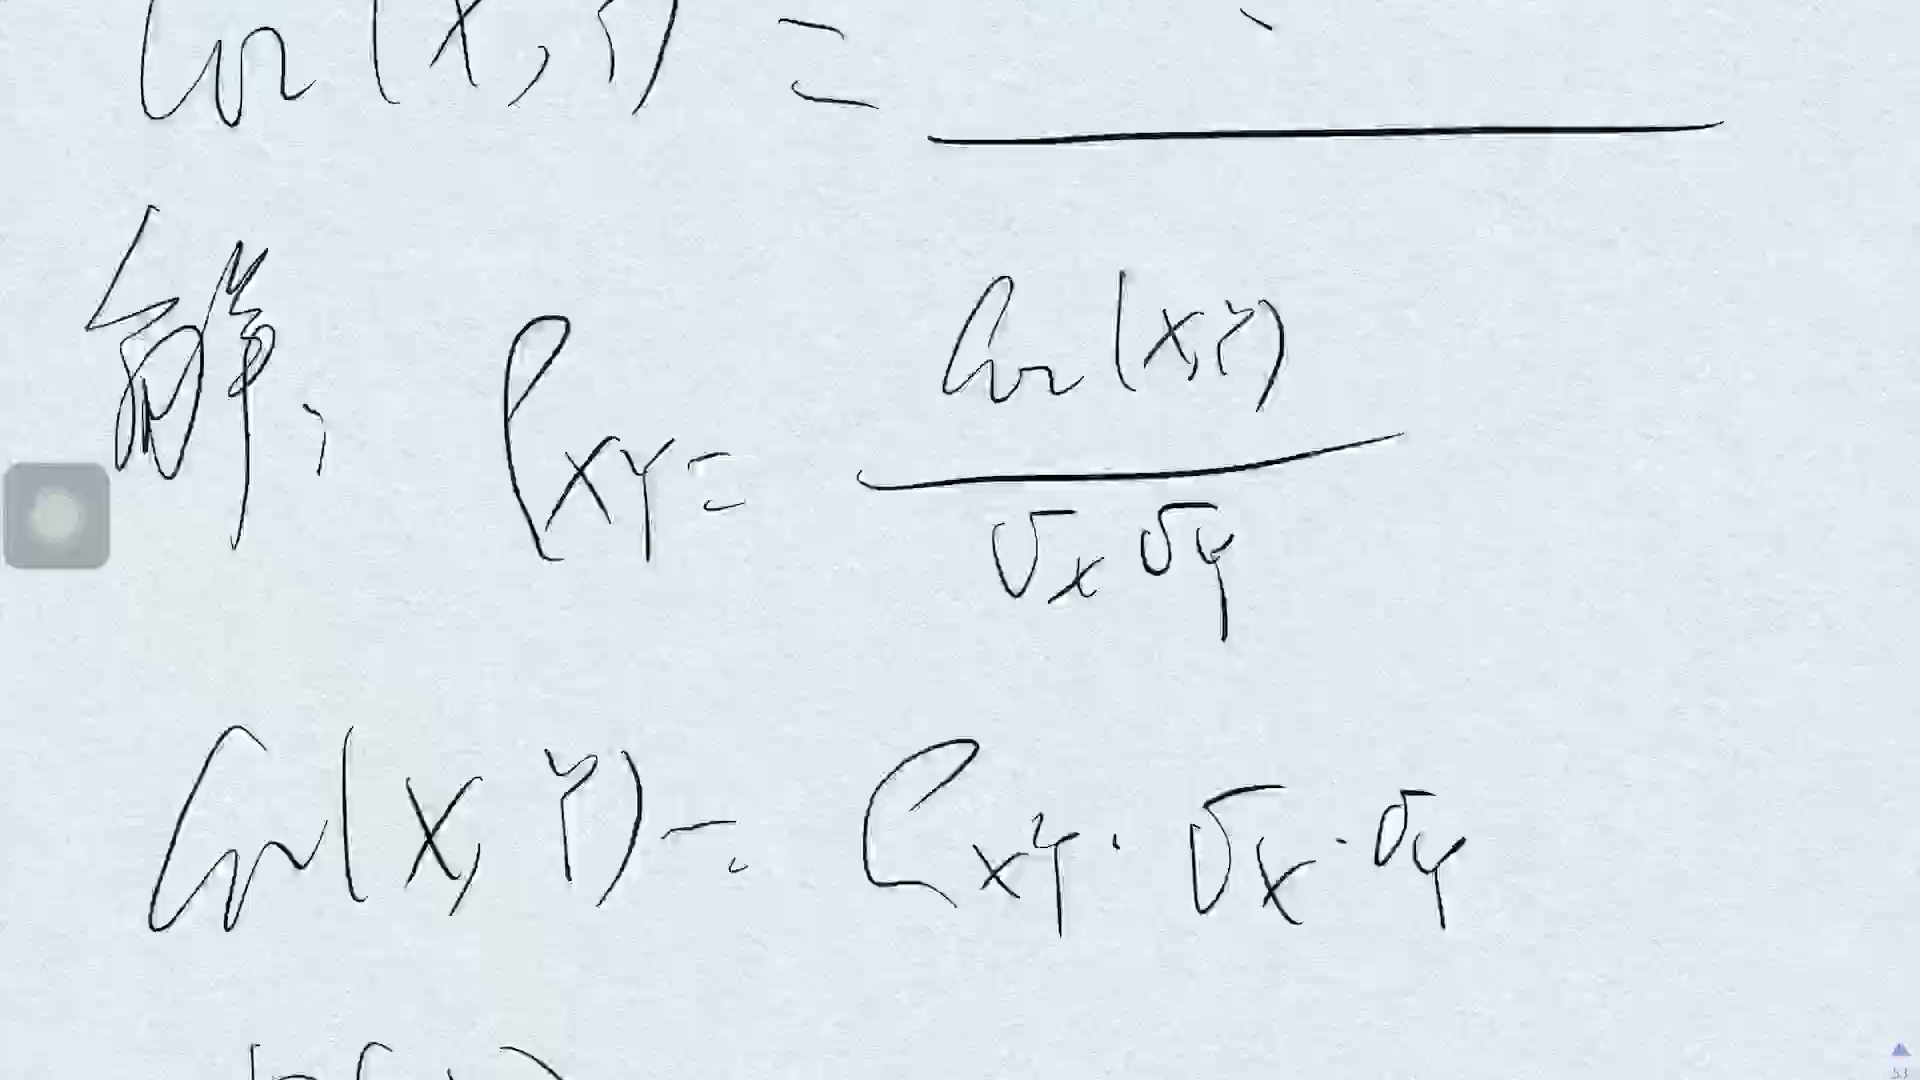 Cov(X,Y) = ______
解:ρ_XY = Cov(X,Y) / σ_X σ_Y
Cov(X,Y) = ρ_XY · σ_X · σ_Y